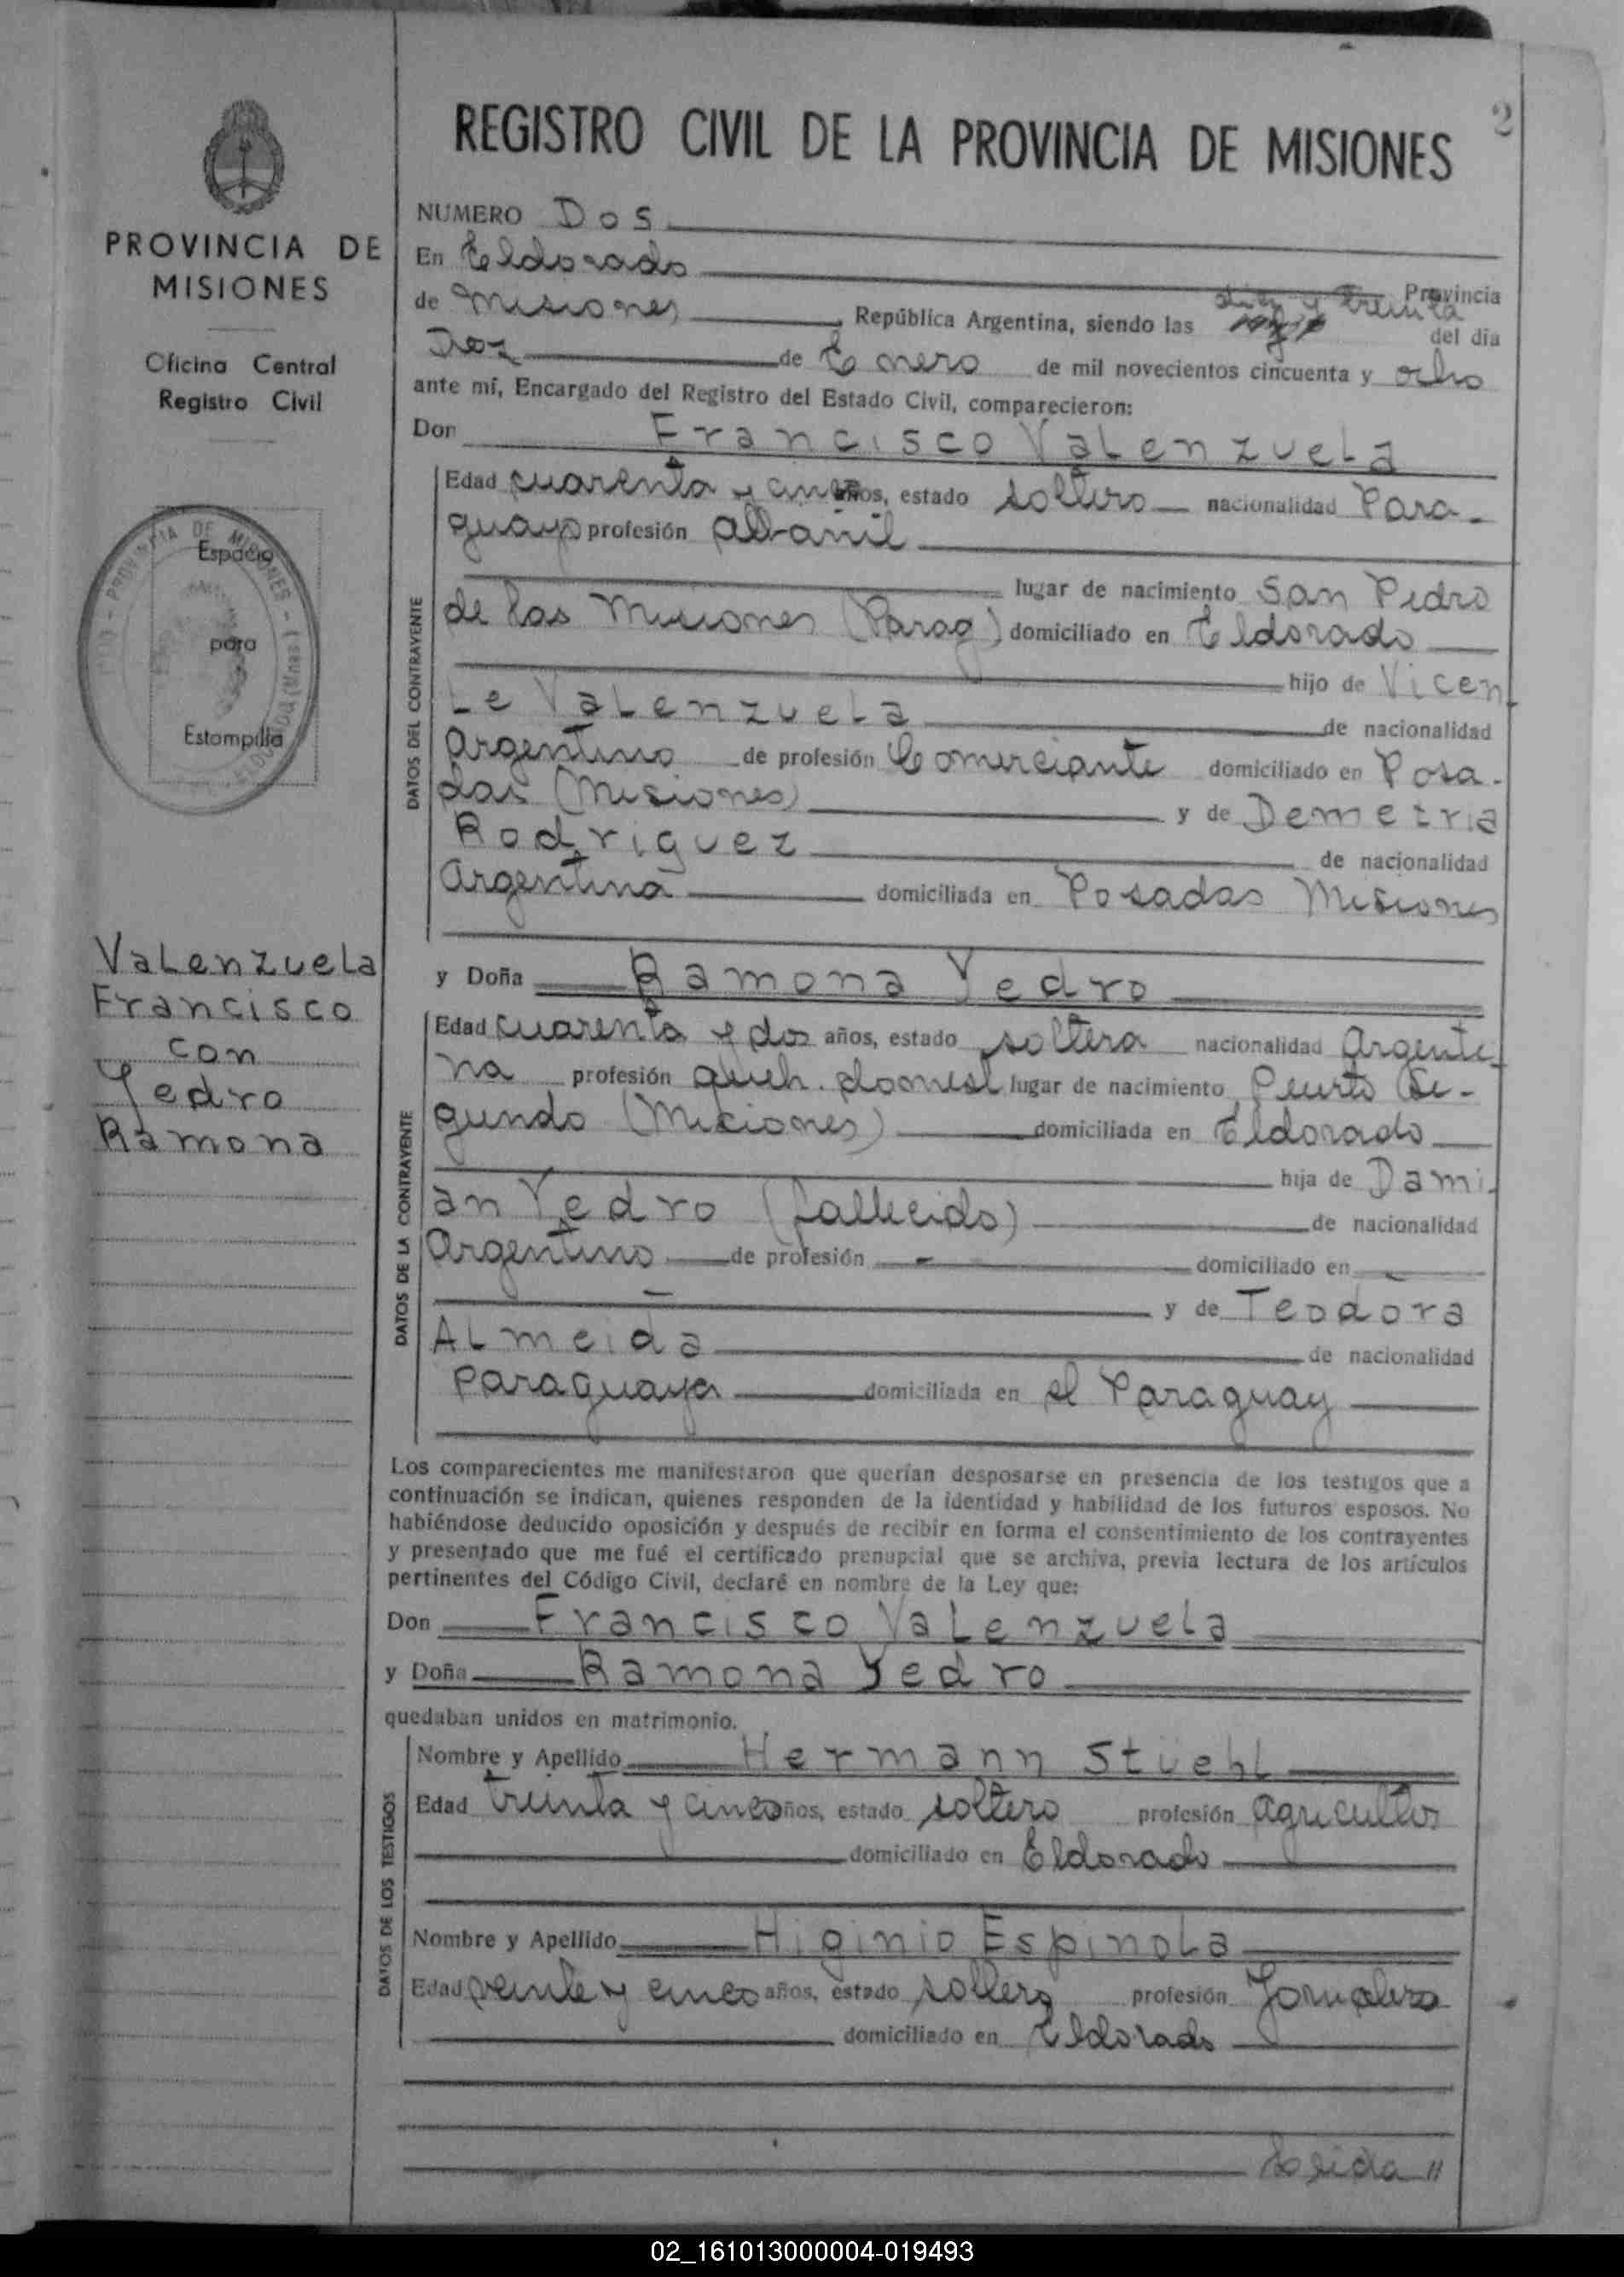 2
REGISTRO CIVIL DE LA PROVINCIA DE MISIONES
PROVINCIA DE
MISIONES
Oficina Central
Registro Civil
PROVINCIA DE MISIONES
ELDORADO (Mnes)
Espacio
para
Estampilla
Valenzuela
Francisco
con
Yedro
Ramona
NUMERO Dos
En Eldorado Provincia
de Misiones, República Argentina, siendo las diez y treinta del día
Dos de Enero de mil novecientos cincuenta y ocho
ante mí, Encargado del Registro del Estado Civil, comparecieron:
Don Francisco Valenzuela
DATOS DEL CONTRAYENTE
Edad cuarenta y cinco años, estado soltero nacionalidad Para-
guayo profesión albañil
lugar de nacimiento San Pedro
de las Misiones (Parag) domiciliado en Eldorado
hijo de Vicen
te Valenzuela de nacionalidad
Argentino de profesión Comerciante domiciliado en Posa-
das (Misiones) y de Demetria
Rodriguez de nacionalidad
Argentina domiciliada en Posadas Misiones
y Doña Ramona Yedro
DATOS DE LA CONTRAYENTE
Edad cuarenta y dos años, estado soltera nacionalidad Argenti
na profesión queh. domest lugar de nacimiento Puerto Se-
gundo (Misiones) domiciliada en Eldorado
hija de Dami-
an Yedro (fallecido) de nacionalidad
Argentino de profesión - domiciliado en -
- y de Teodora
Almeida de nacionalidad
Paraguaya domiciliada en el Paraguay
Los comparecientes me manifestaron que querían desposarse en presencia de los testigos que a
continuación se indican, quienes responden de la identidad y habilidad de los futuros esposos. No
habiéndose deducido oposición y después de recibir en forma el consentimiento de los contrayentes
y presentado que me fué el certificado prenupcial que se archiva, previa lectura de los artículos
pertinentes del Código Civil, declaré en nombre de la Ley que:
Don Francisco Valenzuela
y Doña Ramona Yedro
quedaban unidos en matrimonio.
DATOS DE LOS TESTIGOS
Nombre y Apellido Hermann Stuehl
Edad treinta y cinco años, estado soltero profesión agricultor
domiciliado en Eldorado
Nombre y Apellido Higinio Espinola
Edad veinte y cinco años, estado soltero profesión Jornalero
domiciliado en Eldorado
Leida //
02_161013000004-019493